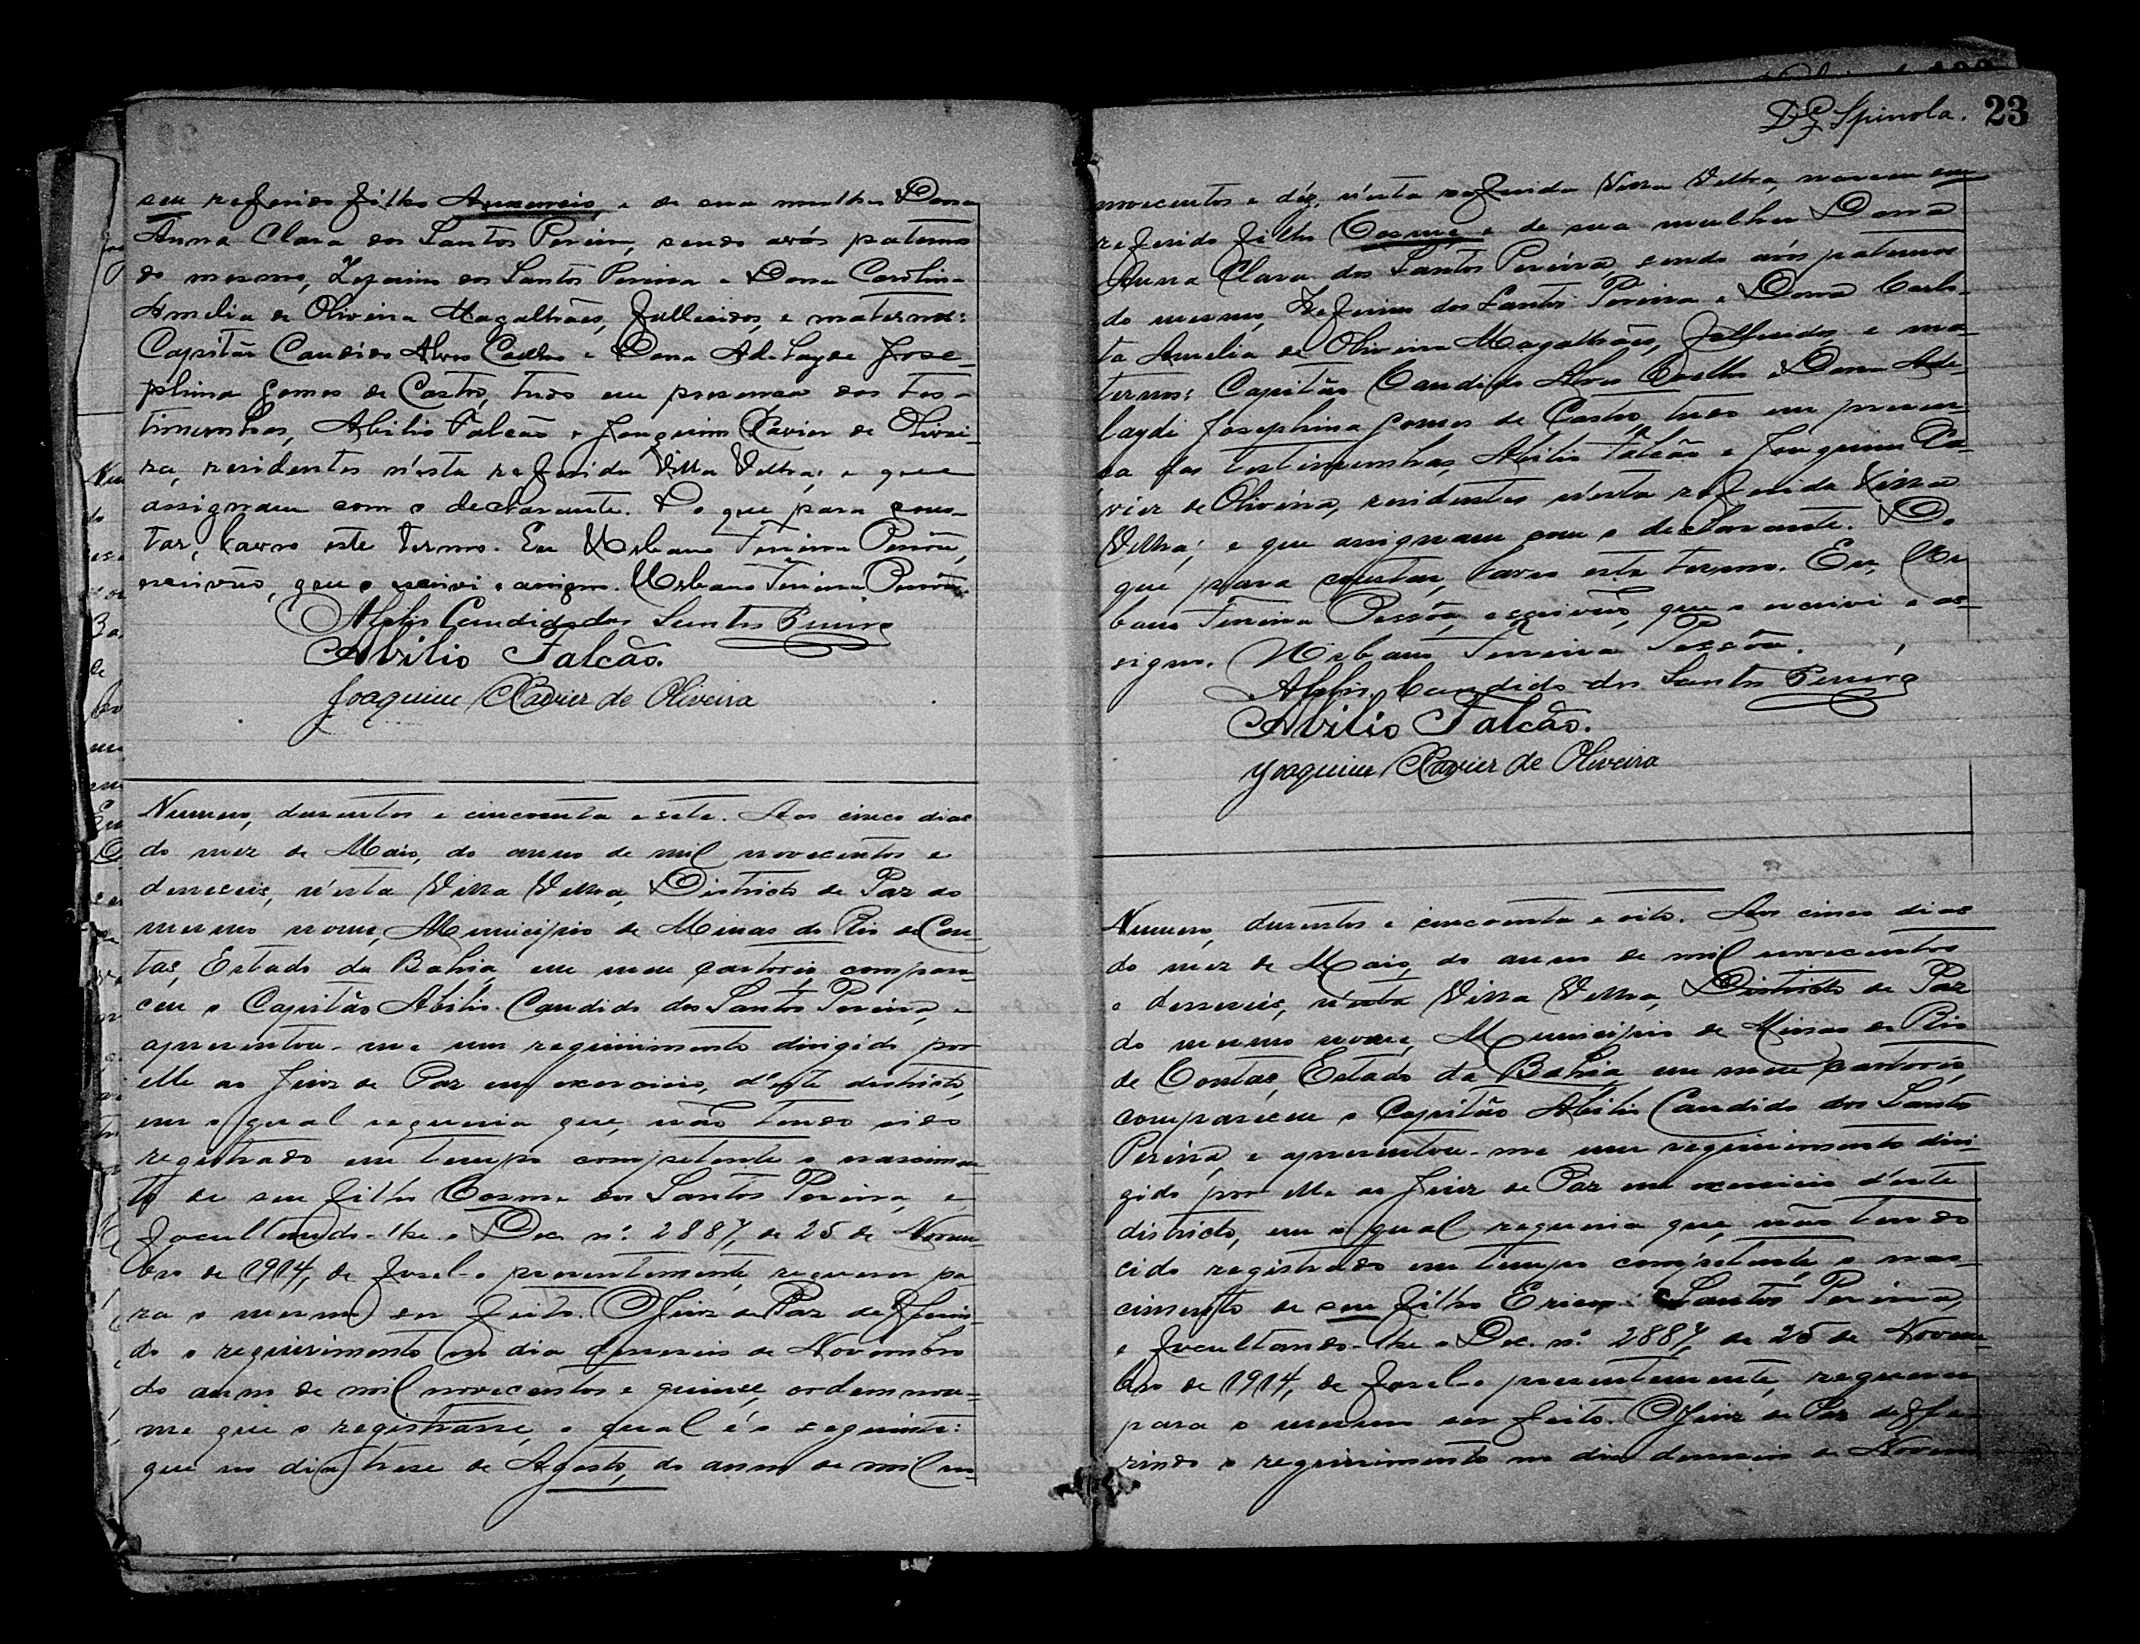 seu referido filho e de sua mulher Dona
Anna Clara dos Santos Pereira, sendo avós paternos
do mesmo, Zeferino dos Santos Pereira e Dona Carolina
Amelia de Oliveira Magalhães, fallecidos, e maternos:
Capitão Candido Alves Coelho e Dona Adelayde Jose-
phina Gomes de Castro, tudo em presença das tes-
timunhas, Abilio Falcão e Joaquim Xavier de Olivei-
ra, residentes n'esta referida Villa Velha; e que
assignam com o declarante. Do que para cons-
tar, lavro este termo. Eu Urbano Ferreira Pessôa,
escrivão, que o escrivi e assigno. Urbano Ferreira Pessôa.
Abilio Candido dos Santos Pereira
Abilio Falcão.
Joaquim Xavier de Oliveira
Numero, dusentos e cincoenta e sete. Aos cinco dias
do mez de Maio, do anno de mil novecentos e
deseseis, n'esta Villa Velha, Districto de Paz do
mesmo nome, Municipio de Minas do Rio de Con-
tas, Estado da Bahia, em meu cartorio, compare-
ceu o Capitão Abilio Candido dos Santos Pereira, e
apresentou-me um requirimento dirigido por
elle ao Juiz de Paz em exercicio, d'este districto,
em o qual requeria que, não tendo sido
registrado em tempo competente o nascimen-
to de seu filho Cosme dos Santos Pereira, e
facultando-lhe o Dec. nº 2887, de 25 de Novem-
bro de 1914, de fasel-o presentemente, requerer pa-
ra o mesmo ser feito. O Juiz de Paz defferin-
do o requirimento no dia deseseis de Novembro
do anno de mil novecentos e quinse, ordennou-
me que o registrasse, o qual é o seguinte:
que no dia trese de Agosto, do anno de mil no-
D G Spinola. 23
novecentos e déz, n'esta referida Villa Velha, nasceu seu
referido filho Cosme, e de sua mulher Dona
Anna Clara dos Santos Pereira, sendo avós paternos
do mesmo, Zeferino dos Santos Pereira e Dona Carlo-
ta Amelia de Oliveira Magalhães, fallecidos, e ma-
ternos: Capitão Candido Alves Coelho e Dona Ade-
layde Josephina Gomes de Castro, tudo em presen-
ça das testimunhas, Abilio Falcão e Joaquim Xa-
vier de Oliveira, residentes n'esta referida Villa
Velha; e que assignam com o declarante. Do
que para constar, lavro este termo. Eu, Ur-
bano Ferreira Pessôa, escrivão, que o escrivi e as-
signo. Urbano Ferreira Pessôa.
Abilio Candido dos Santos Pereira
Abilio Falcão.
Joaquim Xavier de Oliveira
Numero, dusentos e cincoenta e oito. Aos cinco dias
do mez de Maio, do anno de mil novecentos
e deseseis, n'esta Villa Velha, Districto de Paz
do mesmo nome, Municipio de Minas do Rio
de Contas, Estado da Bahia, em meu cartorio,
compareceu o Capitão Abilio Candido dos Santos
Pereira, e apresentou-me um requirimento diri-
gido por elle ao Juiz de Paz em exercicio d'este
districto, em o qual requeria que, não tendo
cido registrado em tempo competente, o nas-
cimento de seu filho Santos Pereira,
e facultando-lhe o Dec. nº 2887, de 25 de Novem-
bro de 1914, de fasel-o presentemente, requerer
para o mesmo ser feito. O Juiz de Paz deffe-
rindo o requirimento no dia deseseis de Novem-